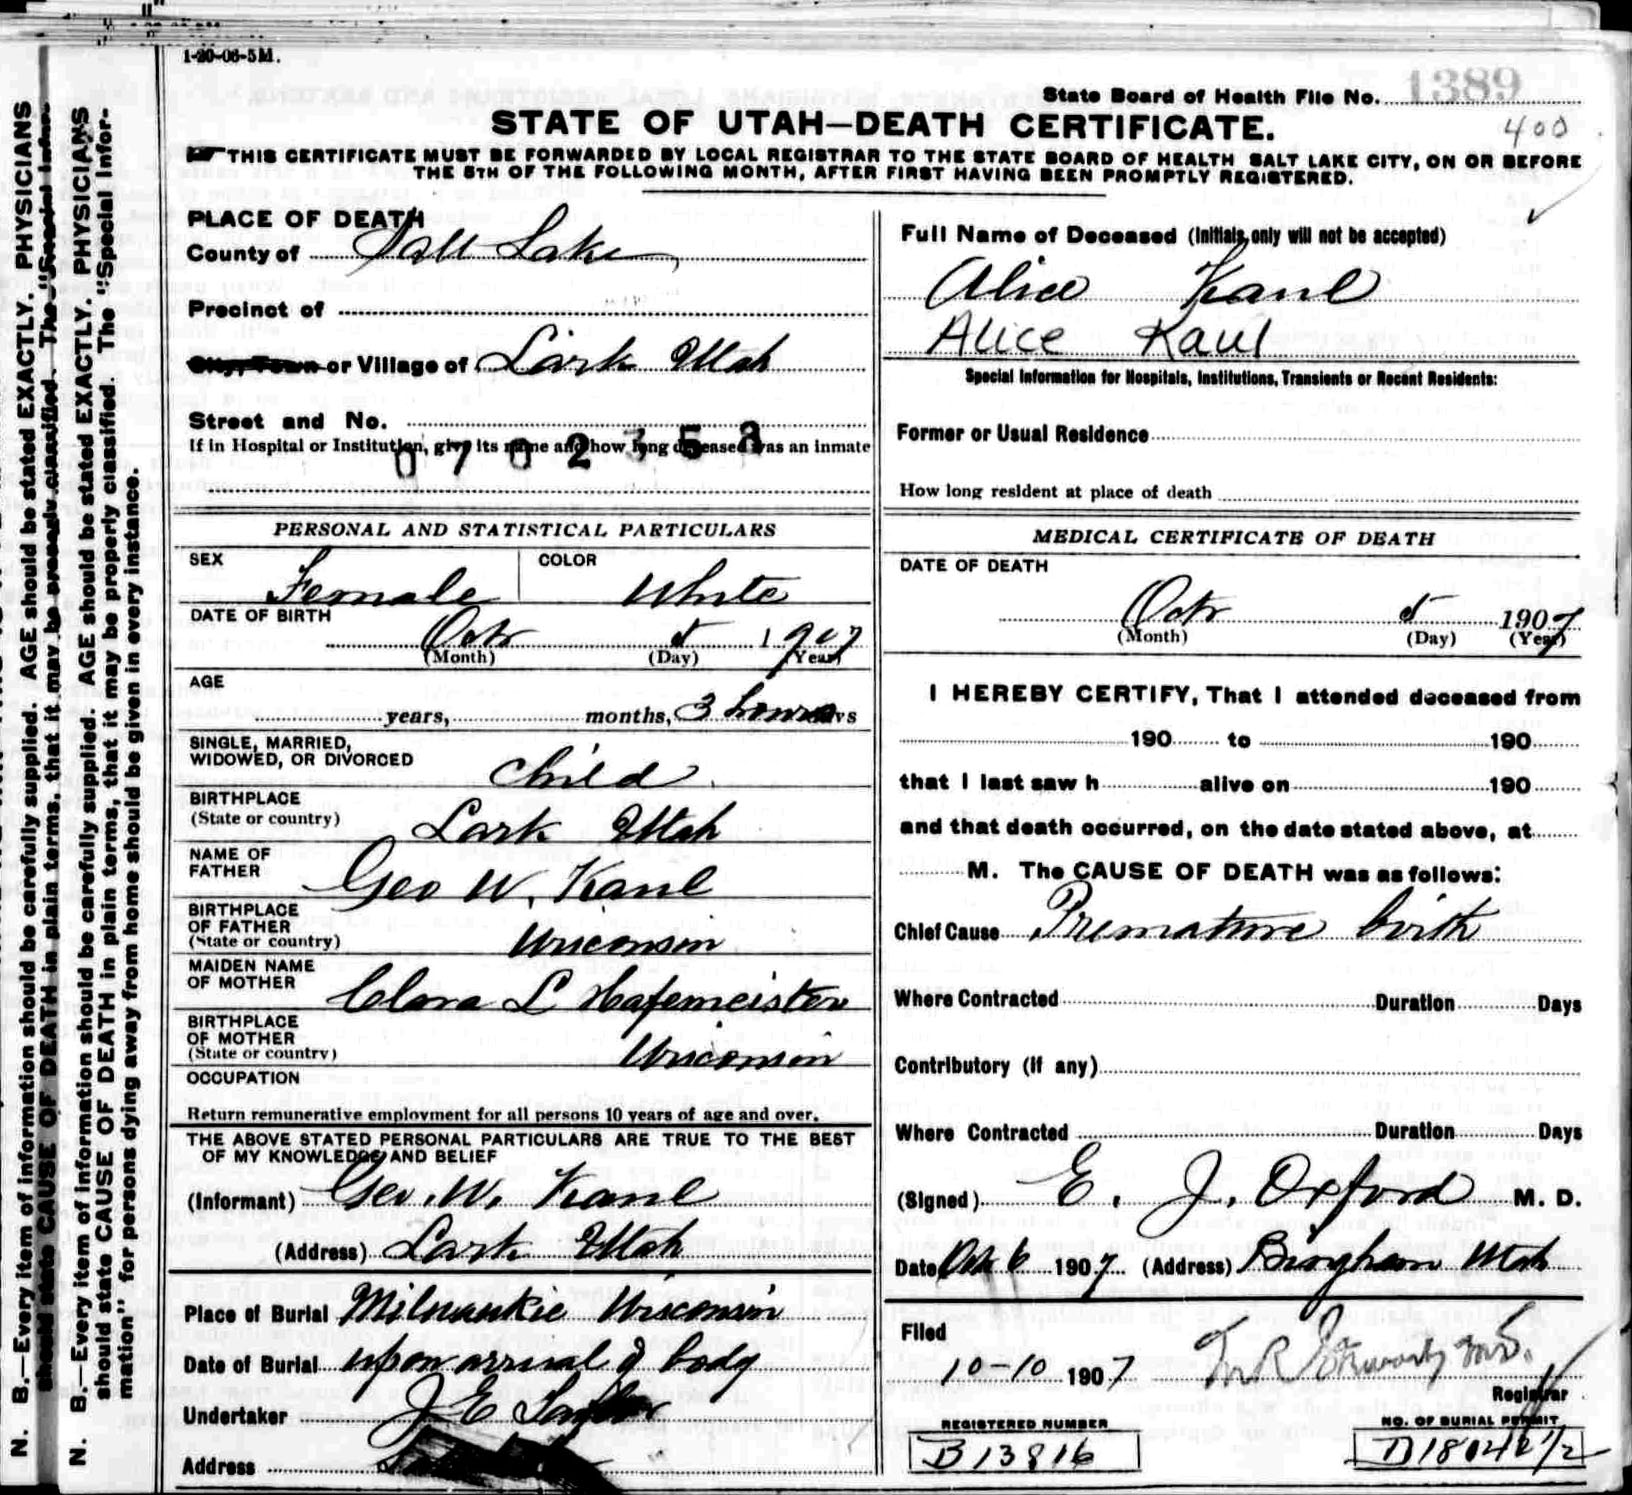 1-20-06-5M.
State Board of Health File No. 1389
STATE OF UTAH—DEATH CERTIFICATE.
400
THIS CERTIFICATE MUST BE FORWARDED BY LOCAL REGISTRAR TO THE STATE BOARD OF HEALTH SALT LAKE CITY, ON OR BEFORE
THE 5TH OF THE FOLLOWING MONTH, AFTER FIRST HAVING BEEN PROMPTLY REGISTERED.
PLACE OF DEATH
County of Salt Lake
Precinct of
City, Town or Village of Lark Utah
Street and No.
If in Hospital or Institution, give its name and how long deceased was an inmate
0702353
PERSONAL AND STATISTICAL PARTICULARS
SEX Female COLOR White
DATE OF BIRTH
Octr 5 1907
(Month) (Day) (Year)
AGE
years, months, 3 hours days
SINGLE, MARRIED,
WIDOWED, OR DIVORCED child
BIRTHPLACE
(State or country) Lark Utah
NAME OF
FATHER Geo W. Kaul
BIRTHPLACE
OF FATHER
(State or country) Wisconsin
MAIDEN NAME
OF MOTHER Clara L Hafemeister
BIRTHPLACE
OF MOTHER
(State or country) Wisconsin
OCCUPATION
Return remunerative employment for all persons 10 years of age and over.
THE ABOVE STATED PERSONAL PARTICULARS ARE TRUE TO THE BEST
OF MY KNOWLEDGE AND BELIEF
(Informant) Geo. W. Kaul
(Address) Lark Utah
Place of Burial Milwaukie Wisconsin
Date of Burial upon arrival of body
Undertaker J E Taylor
Address
Full Name of Deceased (Initials only will not be accepted)
Alice Kaul
Alice Kaul
Special Information for Hospitals, Institutions, Transients or Recent Residents:
Former or Usual Residence
How long resident at place of death
MEDICAL CERTIFICATE OF DEATH
DATE OF DEATH
Octr 5 1907
(Month) (Day) (Year)
I HEREBY CERTIFY, That I attended deceased from
190 to 190
that I last saw h alive on 190
and that death occurred, on the date stated above, at
M. The CAUSE OF DEATH was as follows:
Chief Cause Premature birth
Where Contracted Duration Days
Contributory (if any)
Where Contracted Duration Days
(Signed) E. J. Oxford M. D.
Date Oct 6 1907 (Address) Bingham Utah
Filed
10-10 1907
Registrar
REGISTERED NUMBER NO. OF BURIAL PERMIT
B13816 D18042 1/2
N. B.—Every item of information should be carefully supplied. AGE should be stated EXACTLY. PHYSICIANS
should state CAUSE OF DEATH in plain terms, that it may be properly classified. The "Special Infor-
N. B.—Every item of information should be carefully supplied. AGE should be stated EXACTLY. PHYSICIANS
should state CAUSE OF DEATH in plain terms, that it may be properly classified. The "Special Infor-
mation" for persons dying away from home should be given in every instance.